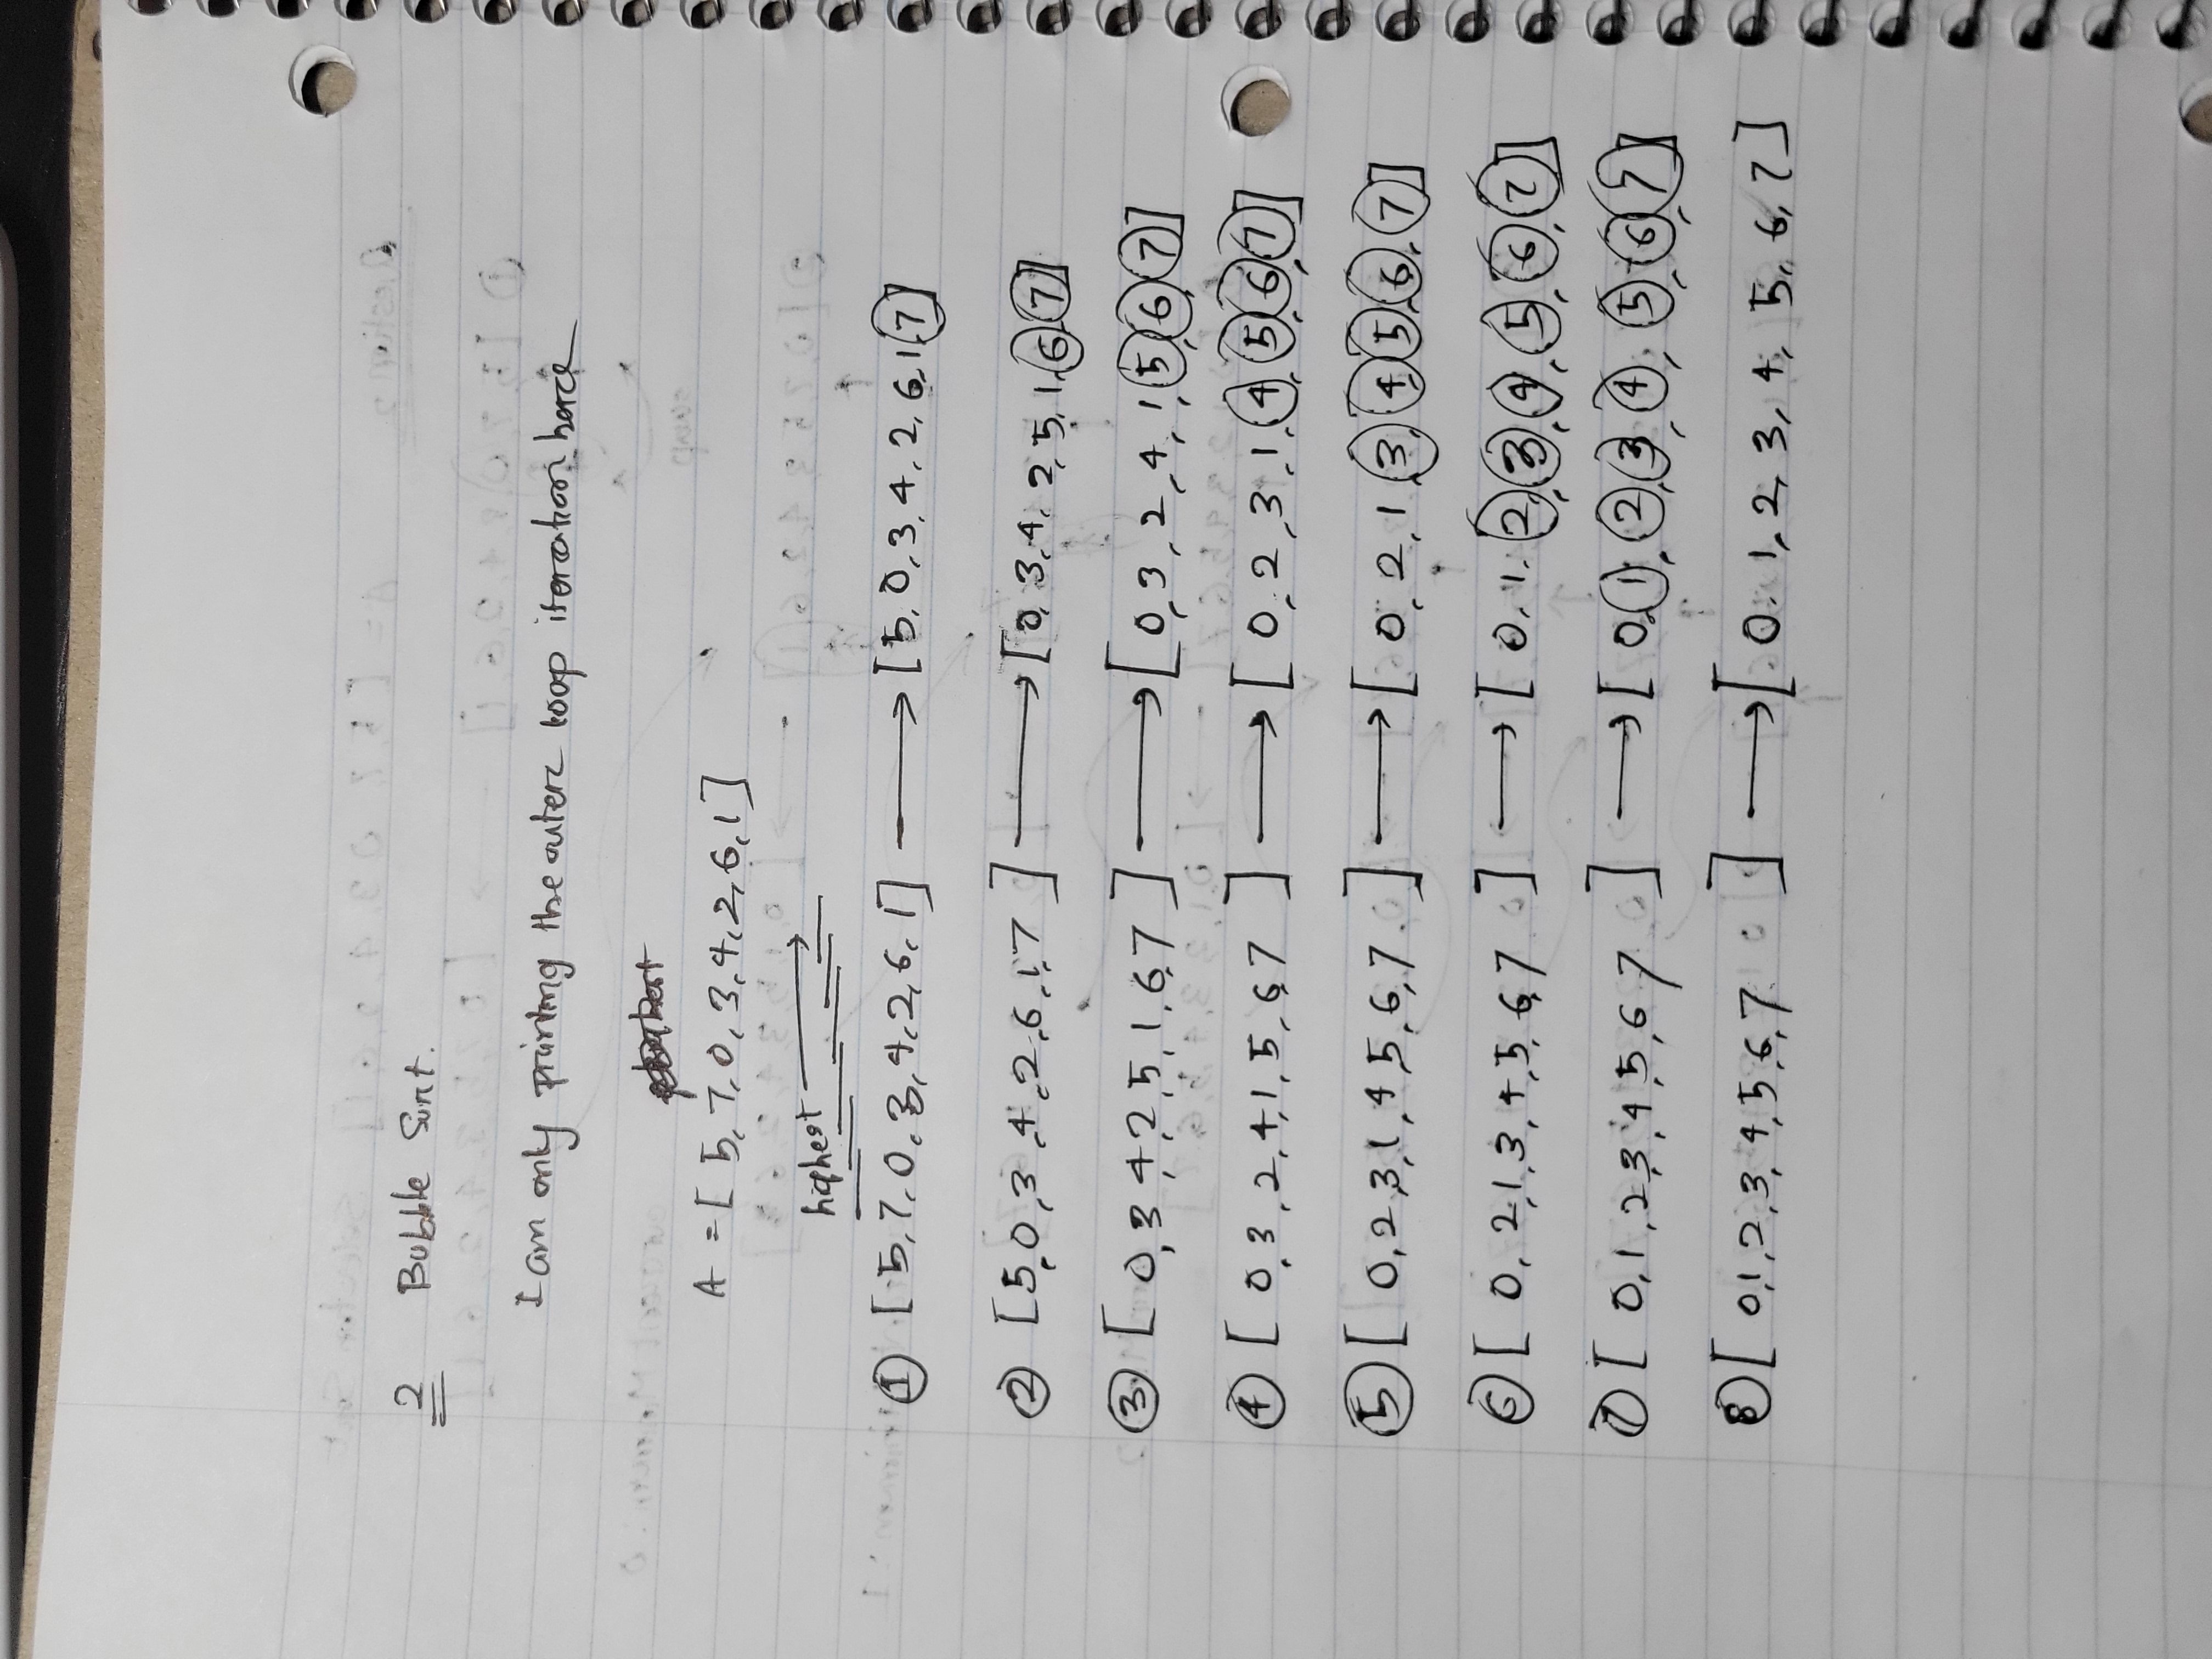 2 Bubble Sort.
I am only printing the outer loop iteration here
A = [ 5, 7, 0, 3, 4, 2, 6, 1 ]
highest →
① [ 5, 7, 0, 3, 4, 2, 6, 1 ] → [ 5, 0, 3, 4, 2, 6, 1, 7 ]
② [ 5, 0, 3, 4, 2, 6, 1, 7 ] → [ 0, 3, 4, 2, 5, 1, 6, 7 ]
③ [ 0, 3, 4, 2, 5, 1, 6, 7 ] → [ 0, 3, 2, 4, 1, 5, 6, 7 ]
④ [ 0, 3, 2, 4, 1, 5, 6, 7 ] → [ 0, 2, 3, 1, 4, 5, 6, 7 ]
⑤ [ 0, 2, 3, 1, 4, 5, 6, 7 ] → [ 0, 2, 1, 3, 4, 5, 6, 7 ]
⑥ [ 0, 2, 1, 3, 4, 5, 6, 7 ] → [ 0, 1, 2, 3, 4, 5, 6, 7 ]
⑦ [ 0, 1, 2, 3, 4, 5, 6, 7 ] → [ 0, 1, 2, 3, 4, 5, 6, 7 ]
⑧ [ 0, 1, 2, 3, 4, 5, 6, 7 ] → [ 0, 1, 2, 3, 4, 5, 6, 7 ]